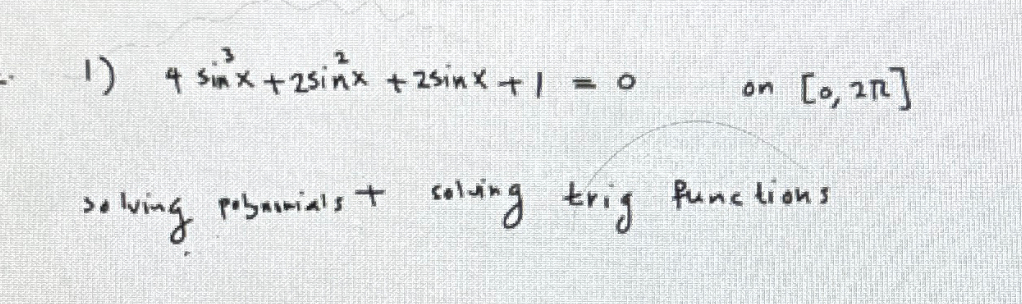 1) 4 sin³x + 2sin²x + 2sinx + 1 = 0 on [0, 2π]
solving polynomials + solving trig functions